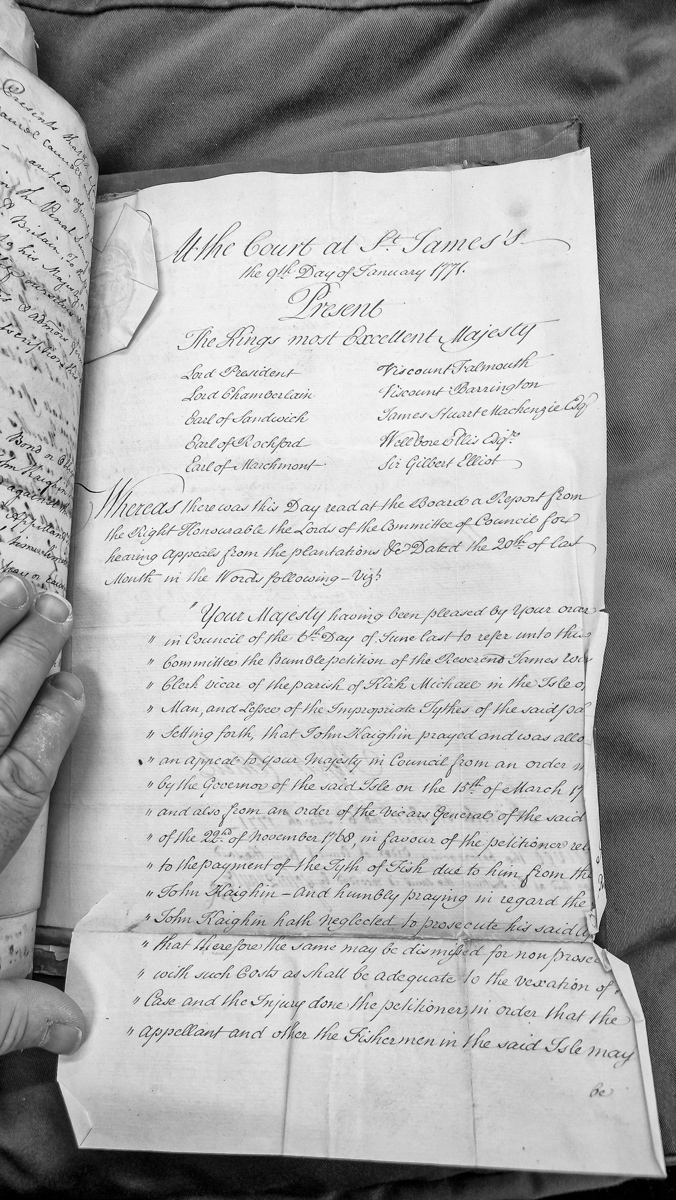 At the Court at St. James's
the 9th Day of January 1771.
Present
The Kings most Excellent Majesty
Lord President
Lord Chamberlain
Earl of Sandwich
Earl of Rochford
Earl of Marchmont
Viscount Falmouth
Viscount Barrington
James Stuart Mackenzie Esqr
Wellbore Ellis Esqr.
Sir Gilbert Elliot
Whereas there was this Day read at the Board a Report from
the Right Honourable the Lords of the Committee of Council for
hearing Appeals from the plantations &c Dated the 20th of last
Month in the Words following - Vizt
" Your Majesty having been pleased by Your order
" in Council of the 6th Day of June last to refer unto this
" Committee the humble petition of the Reverend James
" Clerk vicar of the parish of Kirk Michael in the Isle of
" Man, and Lessee of the Impropriate Tythes of the said
" Setting forth, that John Kaighin prayed and was allo
" an appeal to Your Majesty in Council from an order m
" by the Governor of the said Isle on the 15th of March 17
" and also from an order of the Vicars General of the said
" of the 22nd of November 1768, in favour of the petitioner rel
" to the payment of the Tyth of Fish due to him from the
" John Kaighin - And humbly praying in regard the
" John Kaighin hath neglected to prosecute his said
" that therefore the same may be dismissed for non prosec
" with such Costs as shall be adequate to the vexation of
" Case and the Injury done the petitioner, in order that the
" Appellant and other the Fishermen in the said Isle may
be